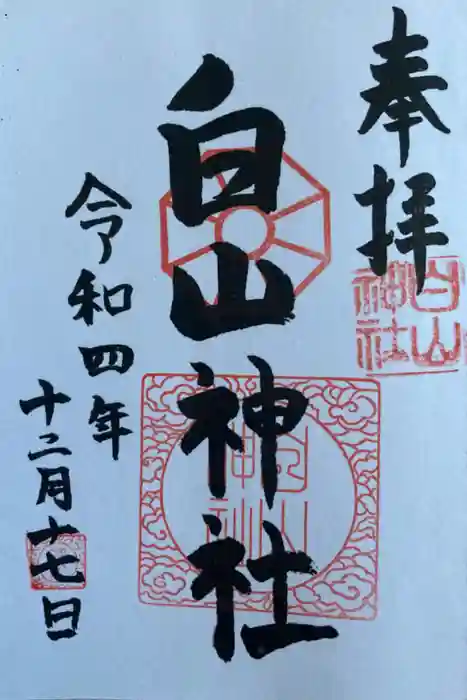 奉拝
白山神社
白山神社
白山神社
令和四年
十二月十七日